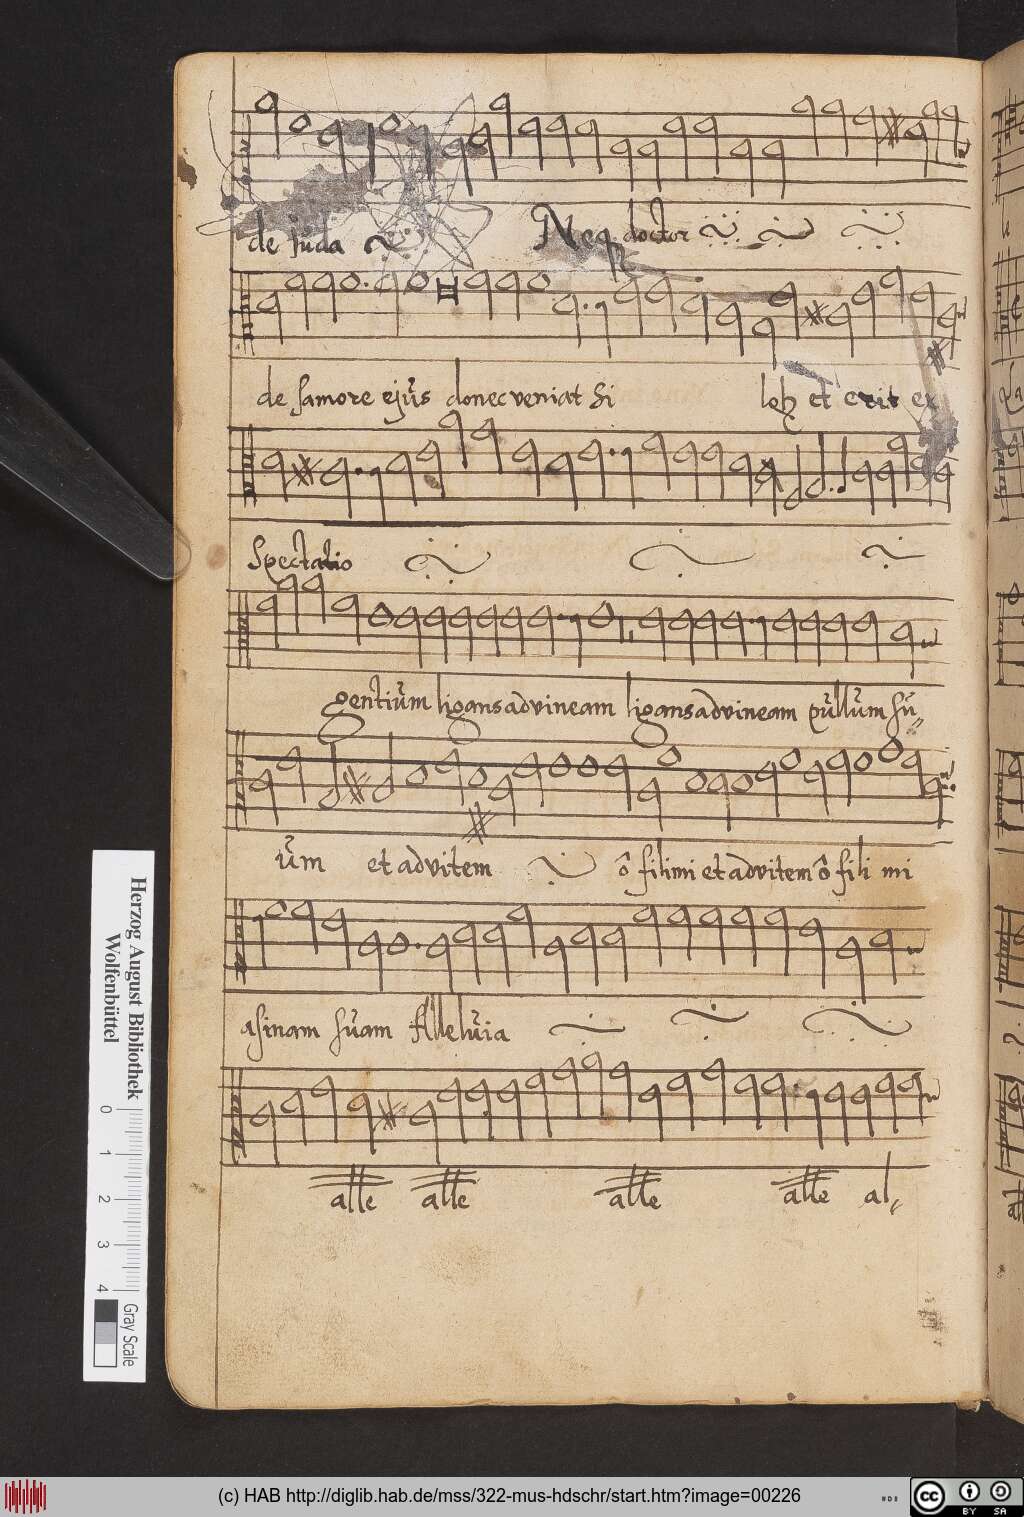 de juda
Neq doctor
de famore ejus donec veniat Si
loh et erit ex
Spectatio
gentium ligans ad vineam ligans ad vineam pullum su
um et ad vitem ô fili mi et ad vitem ô fili mi
asinam suam Alleluia
alle alle alle alle al
Herzog August Bibliothek
Wolfenbüttel
0 1 2 3 4
Gray Scale
(c) HAB http://diglib.hab.de/mss/322-mus-hdschr/start.htm?image=00226
cc BY SA